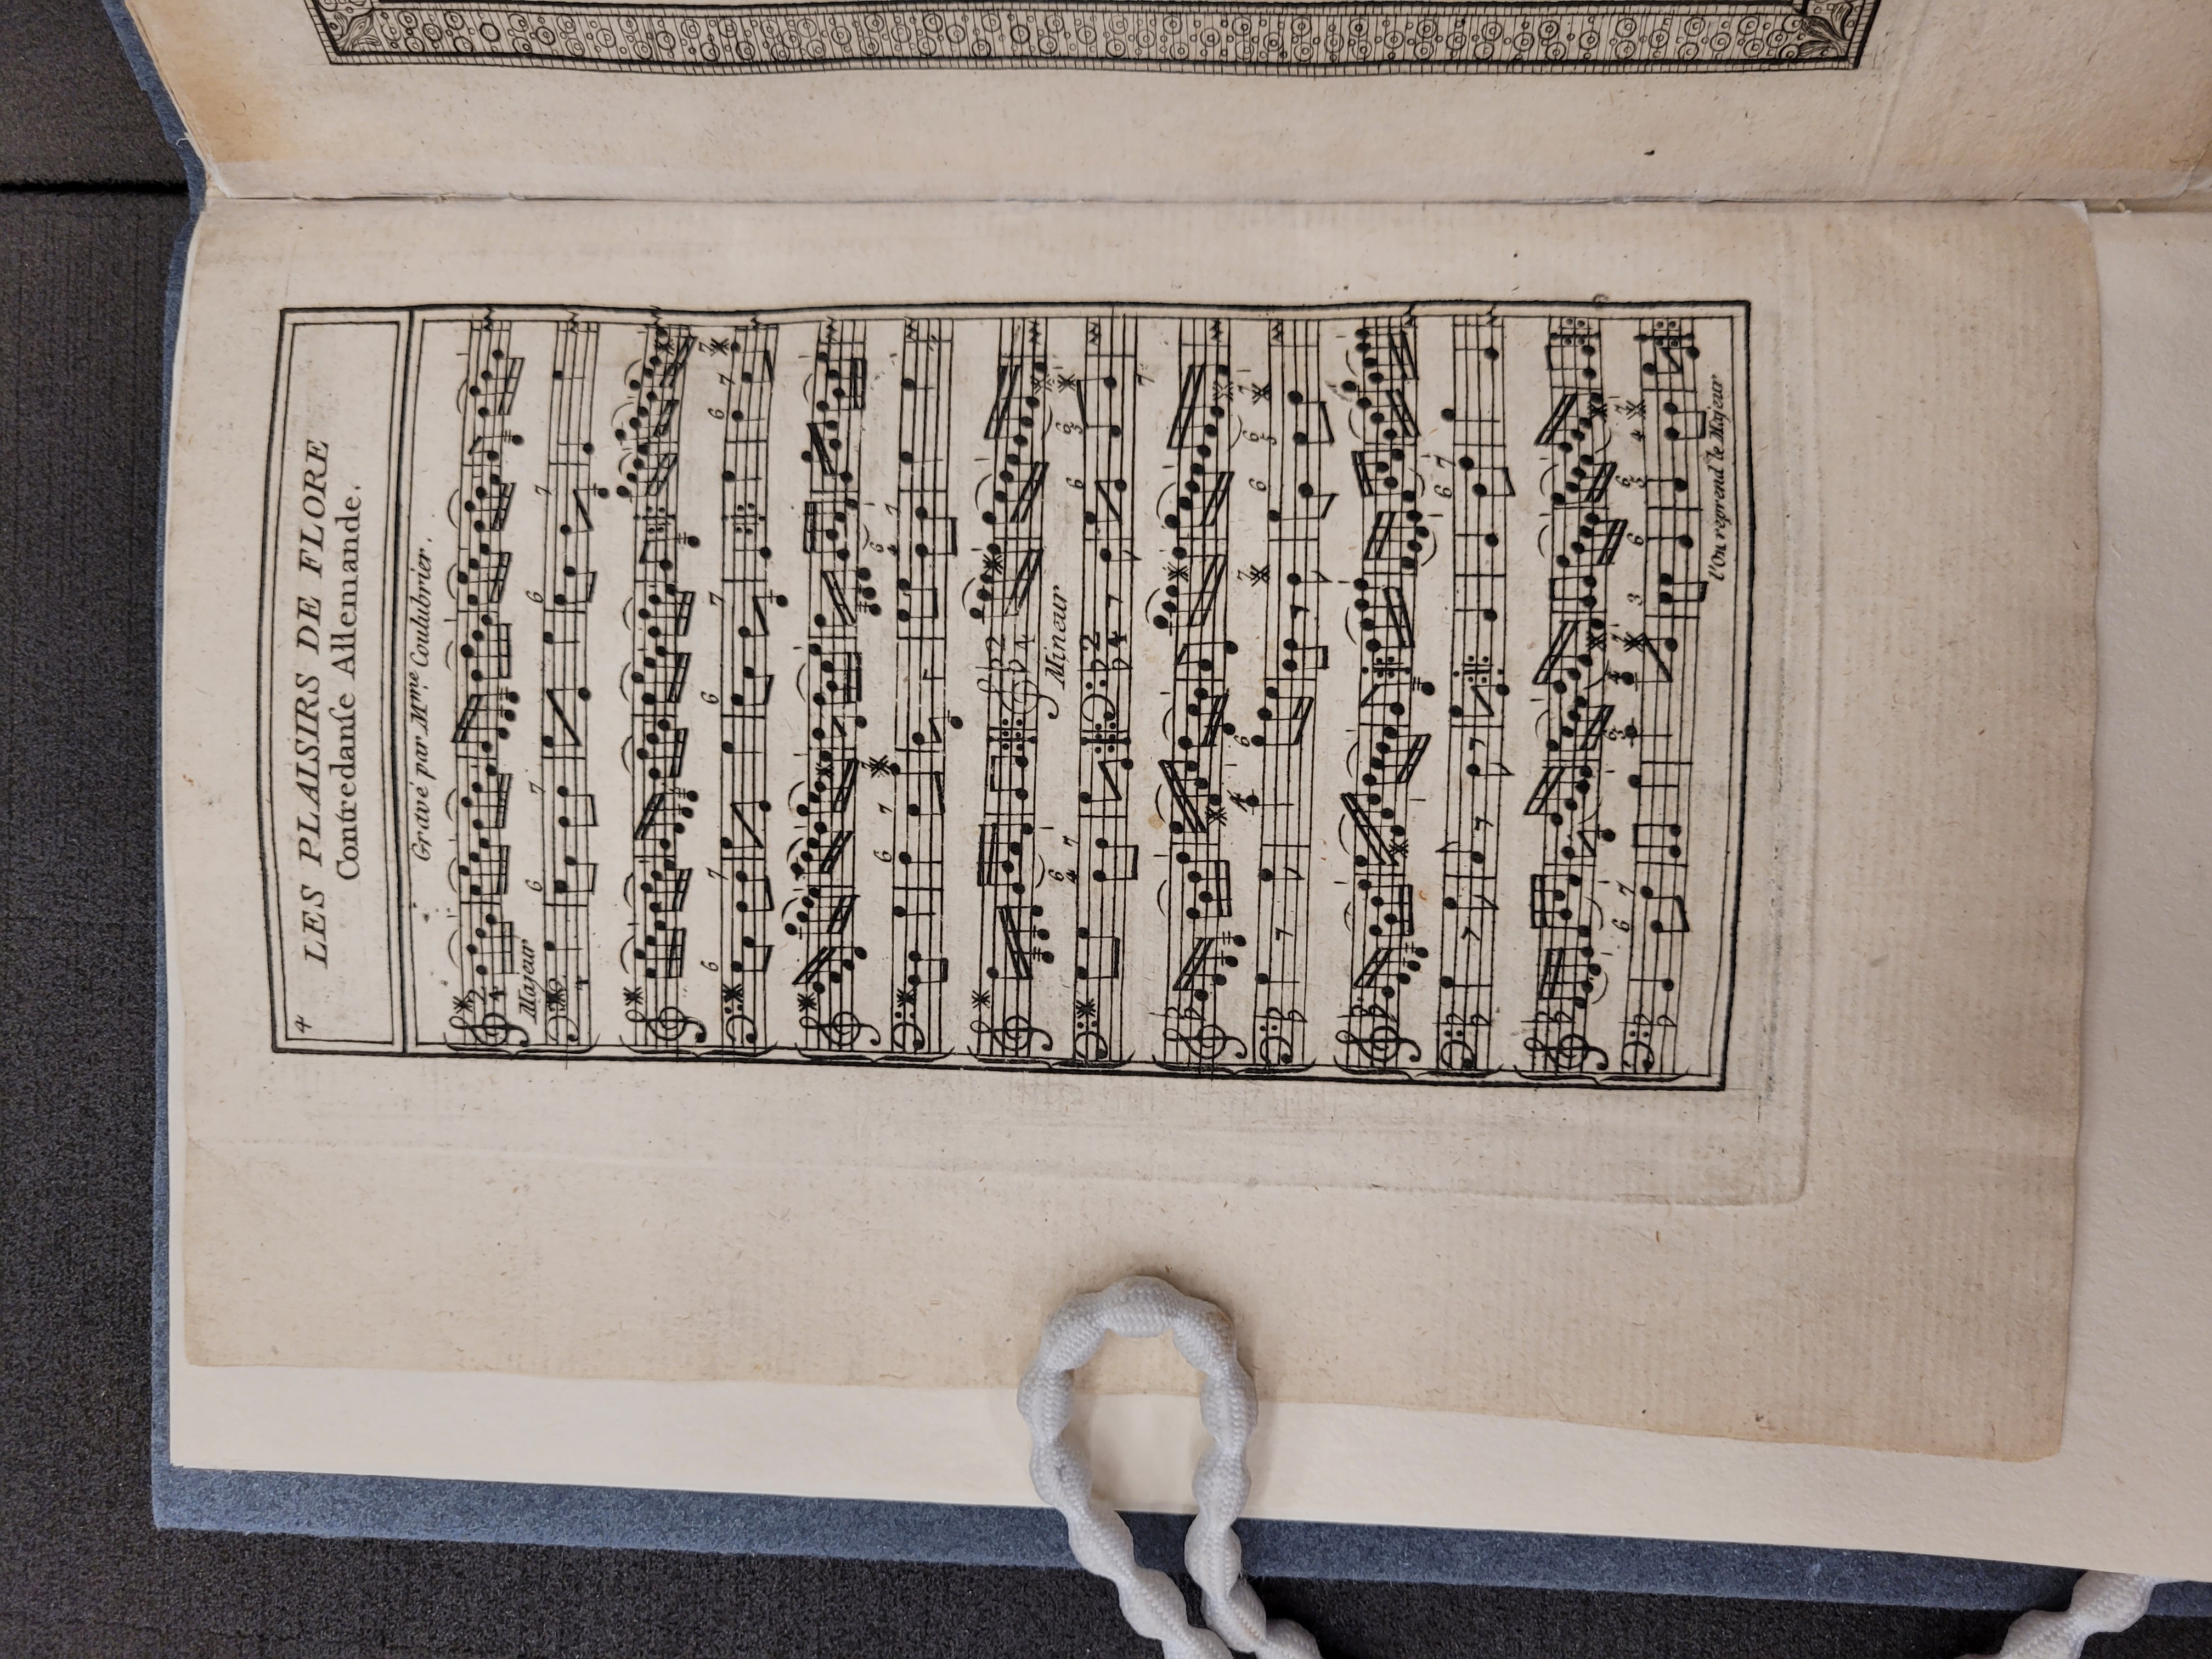 4
LES PLAISIRS DE FLORE
Contredanſe Allemande.
Gravé par Mme. Coulubrier.
Majeur
Mineur
l'On reprend le Majeur